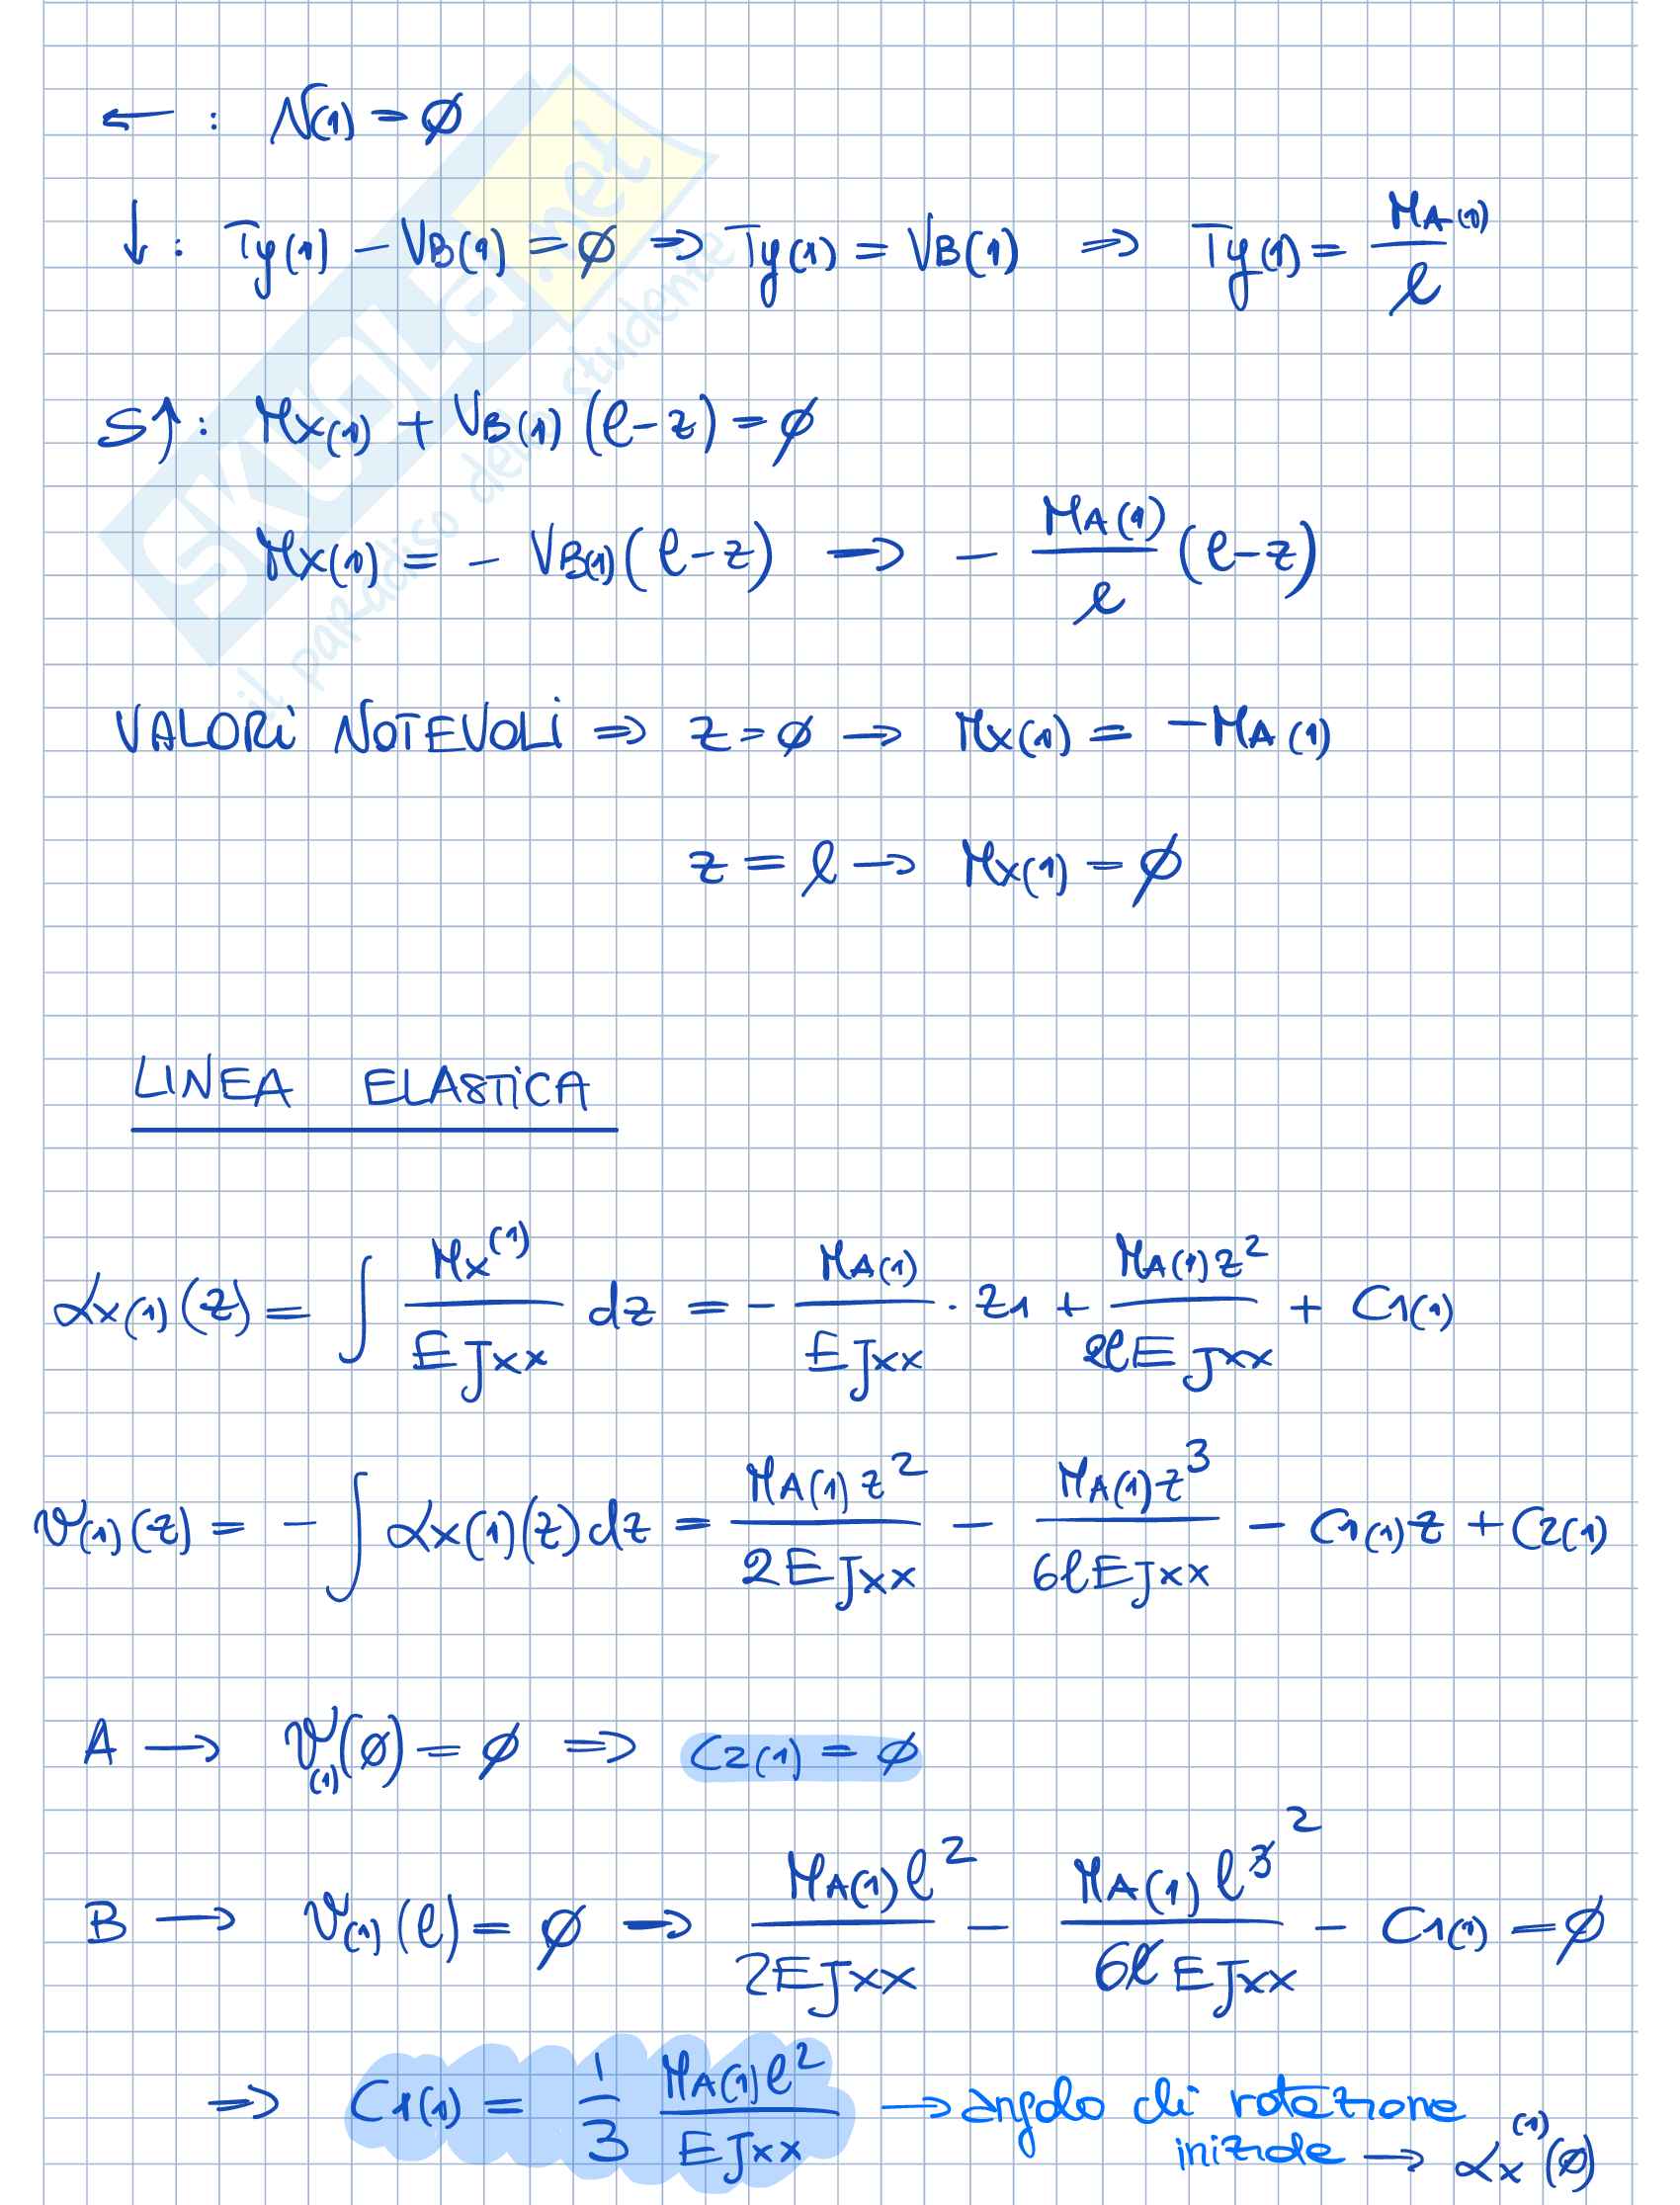 ← : N(1) = ∅
↓ : Ty(1) − VB(1) = ∅ ⇒ Ty(1) = VB(1) ⇒ Ty(1) = MA(1)/ℓ
S↑ : Mx(1) + VB(1) (ℓ−z) = ∅
Mx(1) = − VB(1) (ℓ−z) → − MA(1)/ℓ (ℓ−z)
VALORI NOTEVOLI ⇒ z = ∅ → Mx(1) = −MA(1)
z = ℓ → Mx(1) = ∅
LINEA ELASTICA
αx(1)(z) = ∫ Mx^(1)/EJxx dz = − MA(1)/EJxx · z1 + MA(1)z²/2ℓEJxx + C1(1)
v(1)(z) = − ∫ αx(1)(z)dz = MA(1)z²/2EJxx − MA(1)z³/6ℓEJxx − C1(1)z + C2(1)
A → v(1)(∅) = ∅ ⇒ C2(1) = ∅
B → v(1)(ℓ) = ∅ → MA(1)ℓ²/2EJxx − MA(1)ℓ³ ²/6ℓEJxx − C1(1) = ∅
⇒ C1(1) = 1/3 MA(1)ℓ²/EJxx → angolo di rotazione
iniziale → αx^(1)(∅)
SKUOLA.net
il paradiso dello studente